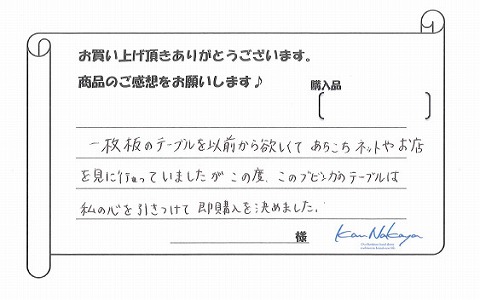 お買い上げ頂きありがとうございます。
商品のご感想をお願いします♪
購入品
一枚板のテーブルを以前から欲しくて あちこち ネットや お店
を見に行っていましたが この度、このブビンガのテーブルは
私の心を引きつけて 即購入を決めました。
様
Kan Nakaya